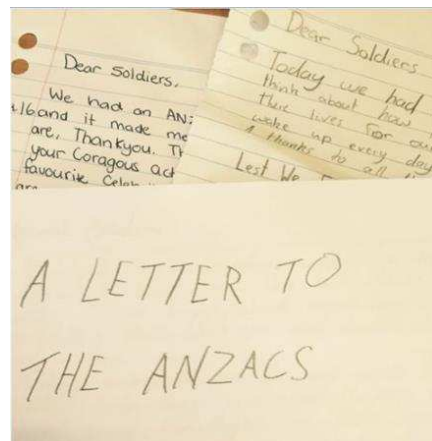 Dear Soldiers,
We had an ANZ
16 and it made me
are, Thankyou. Th
your Coragous act
favourite Celeb
are
Dear Soldiers
Today we had
think about how
their lives for our
wake up every day
thanks to all
Lest We F
A LETTER TO
THE ANZACS